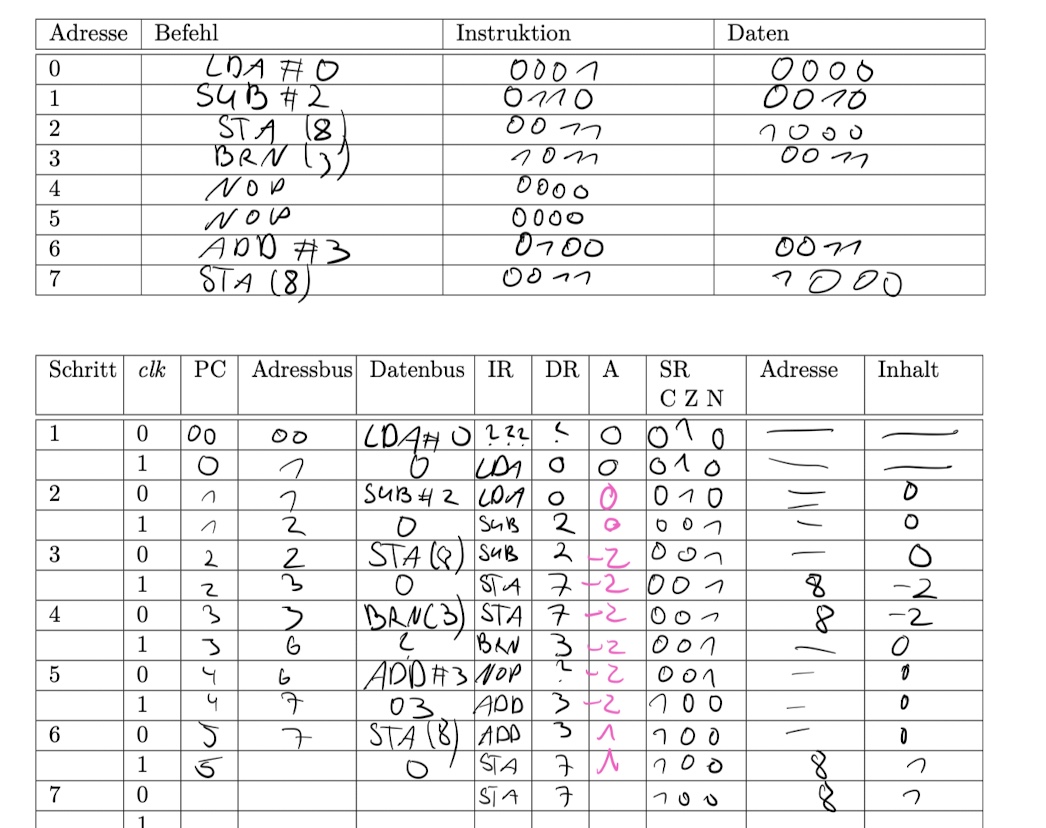 Adresse Befehl Instruktion Daten
0 LDA # 0 0001 0000
1 SUB # 2 0110 0010
2 STA (8) 0011 1000
3 BRN (3) 1011 0011
4 NOP 0000
5 NOP 0000
6 ADD #3 0100 0011
7 STA (8) 0011 1000
Schritt clk PC Adressbus Datenbus IR DR A SR Adresse Inhalt
C Z N
1 0 00 00 LDA# 0 ??? ? 0 010 — —
1 0 1 0 LDA 0 0 010 — —
2 0 1 1 SUB #2 LDA 0 0 010 — 0
1 1 2 0 SUB 2 0 001 — 0
3 0 2 2 STA(8) SUB 2 -2 001 — 0
1 2 3 0 STA 7 -2 001 8 -2
4 0 3 3 BRN(3) STA 7 -2 001 8 -2
1 3 6 ? BRN 3 -2 001 — 0
5 0 4 6 ADD#3 NOP ? -2 001 — 0
1 4 7 03 ADD 3 -2 100 — 0
6 0 5 7 STA (8) ADD 3 1 100 — 0
1 5 0 STA 7 1 100 8 1
7 0 STA 7 100 8 1
1